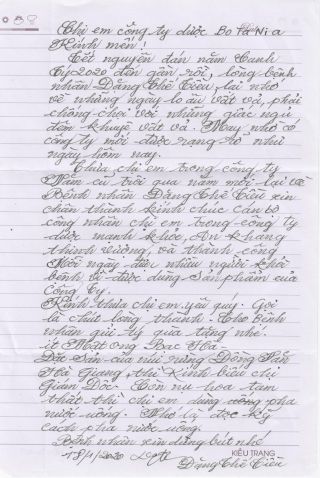 Chị em công ty dược Bo Ta Ni a
Kính mến!
Tết nguyên đán năm Canh
Tý 2020 đến gần rồi, lòng bệnh
nhân Đặng Chế Tiều, lại nhớ
về những ngày lo âu vất vả, phải
chống chọi với những giấc ngủ
đêm khuya vất vả. May nhờ có
công ty mới được rạng rỡ như
ngày hôm nay.
Thưa chị em trong công ty
Năm cũ trôi qua năm mới lại về
Bệnh nhân Đặng Chế Tiều xin
chân thành kính chúc cán bộ
công nhân chị em trong công ty
được mạnh khỏe, An khang
thịnh vượng, và thành công
Mỗi ngày được nhiều người
bệnh được dùng sản phẩm của
Công ty.
Kính thưa chị em yêu quý. Gọi
là chút lòng thành. Cho bệnh
nhân gửi tý quà tặng nhé.
ít Mật ong Bạc Hà
Đặc sản của núi rừng Đồng Văn
Hà Giang, thì kính biếu chị
Giám Đốc. Còn nụ hoa tam
thất thì chị em dùng pha
nước uống. Nhớ là đọc kỹ
cách pha nước uống.
Bệnh nhân xin dừng bút nhé
18/1/2020
Đặng Chế Tiều
KIỀU TRANG